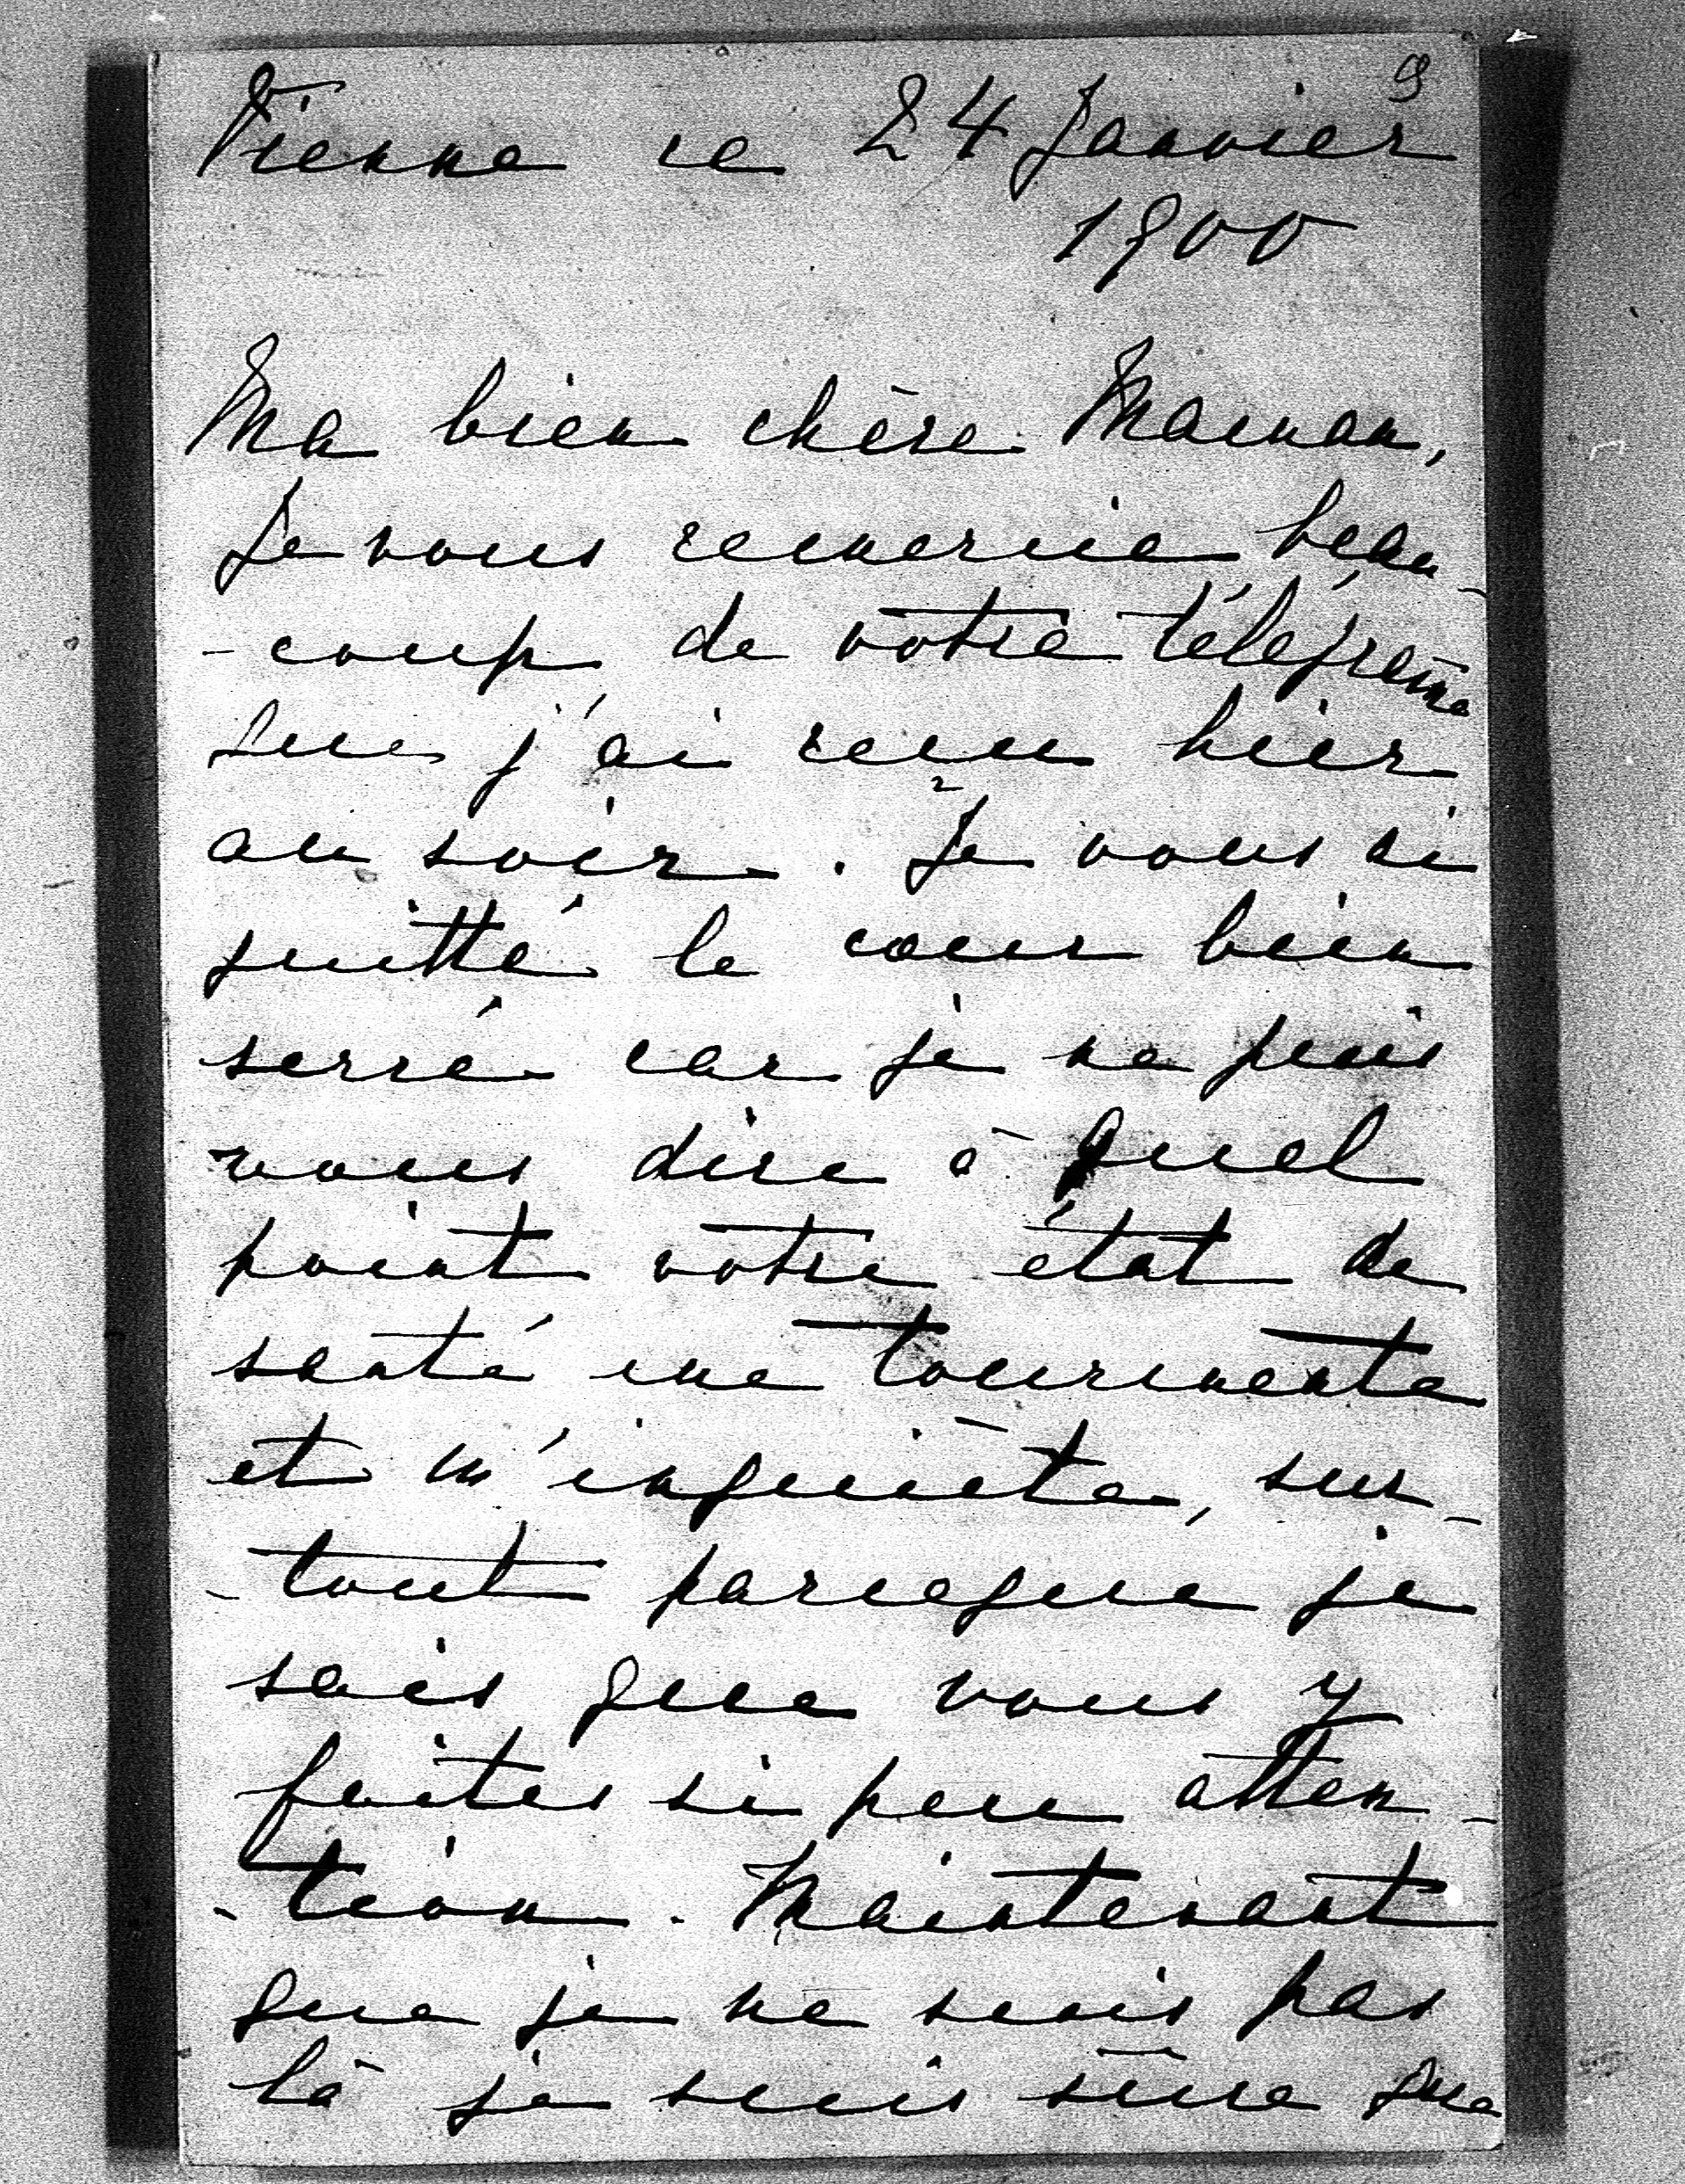 9
Vienne ce 24 Janvier
1900
Ma bien chère Maman,
Je vous remercie beau-
-coup de votre télégramme
que j'ai reçu hier
au soir. Je vous ai
quitté le cœur bien
serré car je ne puis
vous dire à quel
point votre état de
santé me tourmente
et m'inquiète, sur-
-tout parceque je
sais que vous y
faites si peu atten-
-tion. Maintenant
que je ne suis pas
là je suis sûre que